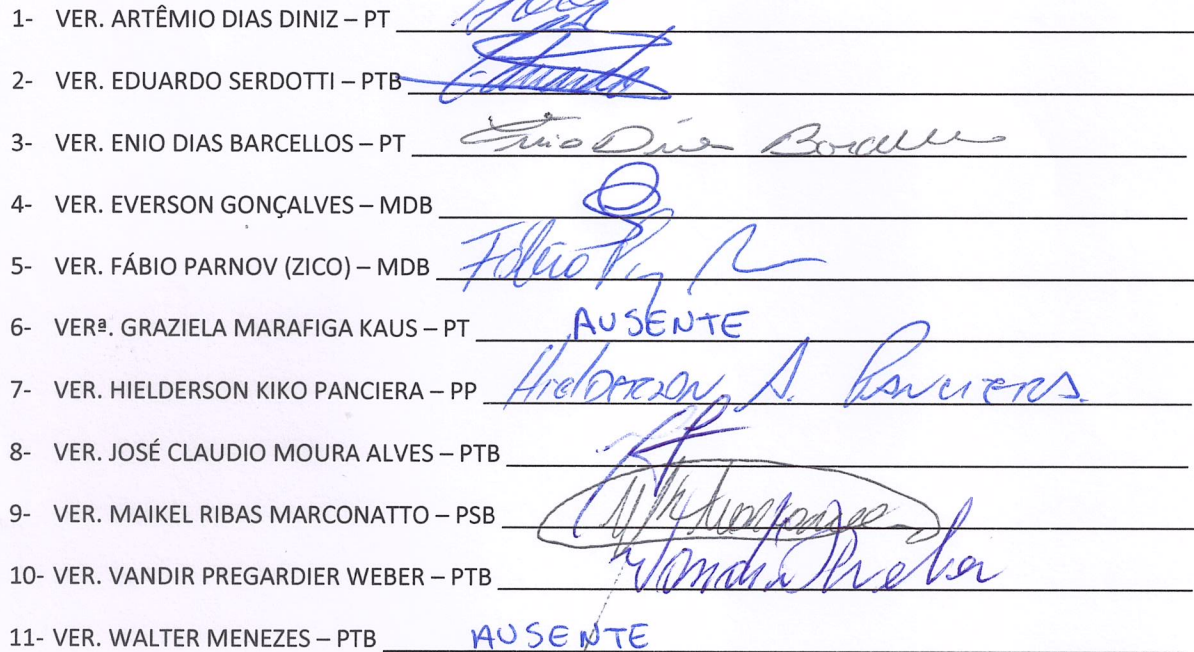 1- VER. ARTÊMIO DIAS DINIZ – PT
2- VER. EDUARDO SERDOTTI – PTB Eduardo
3- VER. ENIO DIAS BARCELLOS – PT Enio Dias Barcellos
4- VER. EVERSON GONÇALVES – MDB
5- VER. FÁBIO PARNOV (ZICO) – MDB Fábio
6- VERª. GRAZIELA MARAFIGA KAUS – PT AUSENTE
7- VER. HIELDERSON KIKO PANCIERA – PP Hielderson A. Panciera
8- VER. JOSÉ CLAUDIO MOURA ALVES – PTB
9- VER. MAIKEL RIBAS MARCONATTO – PSB
10- VER. VANDIR PREGARDIER WEBER – PTB
11- VER. WALTER MENEZES – PTB AUSENTE